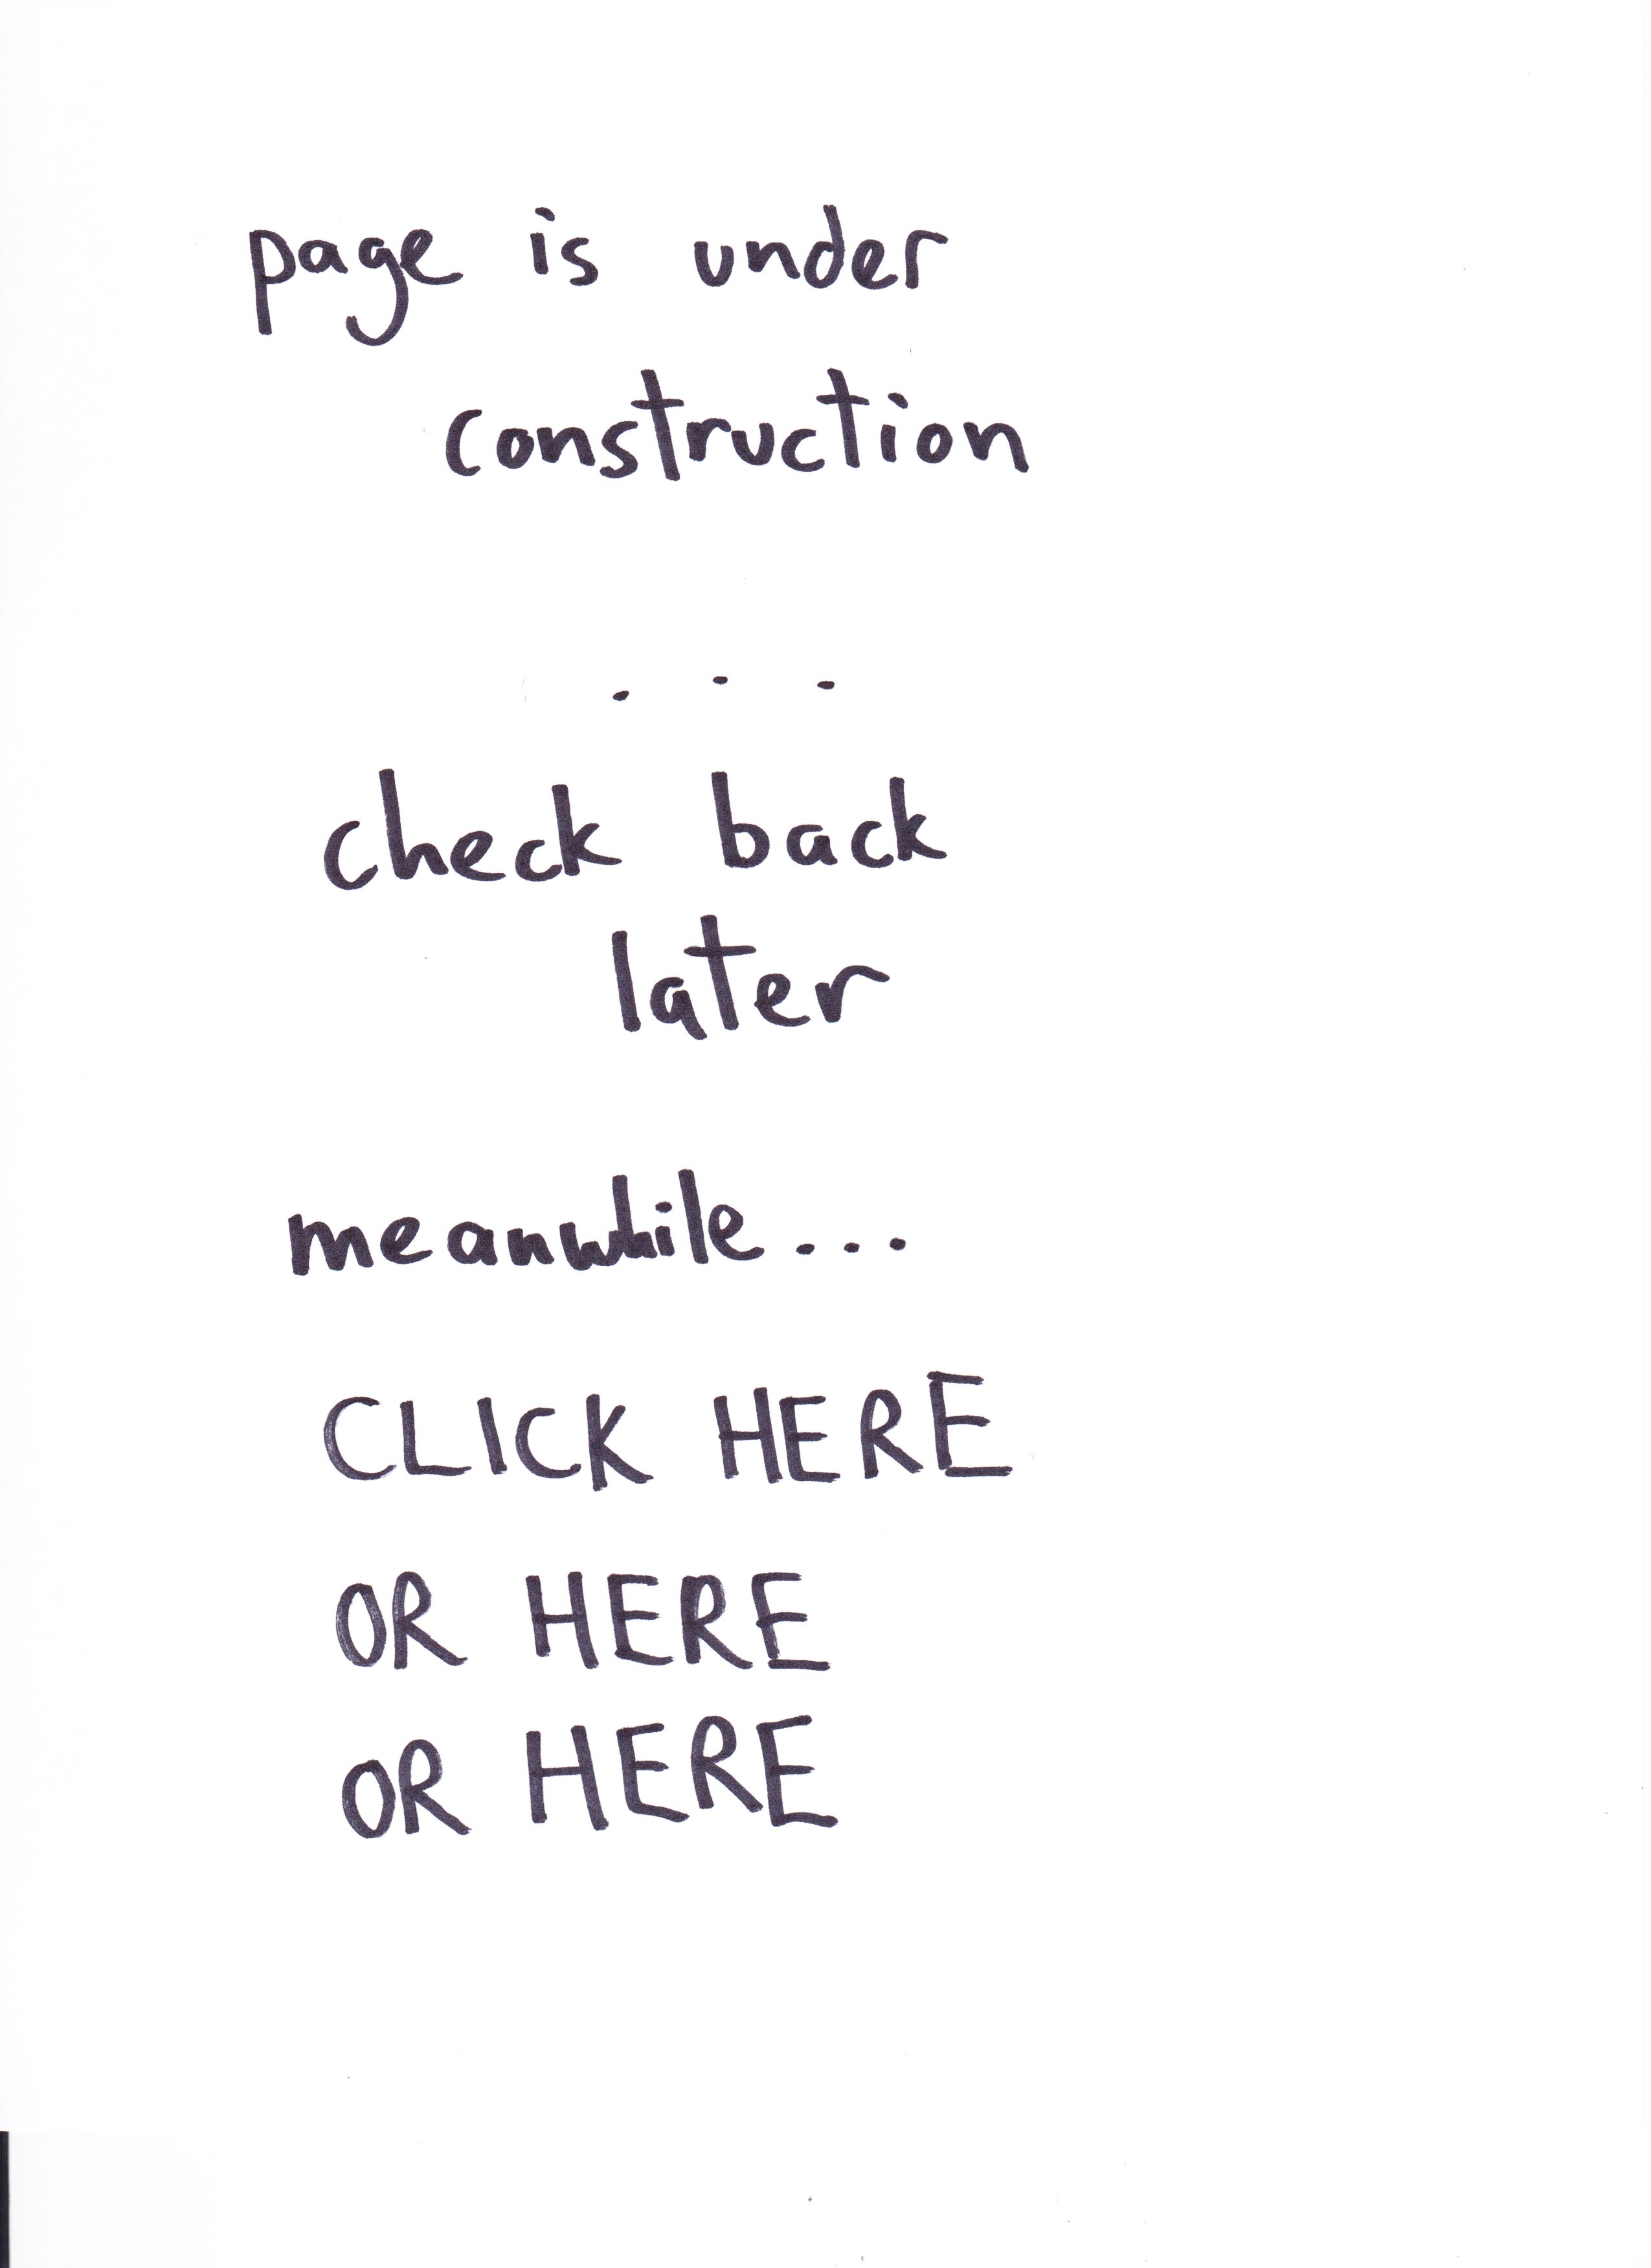 page is under
construction
. . .
check back
later
meanwhile...
CLICK HERE
OR HERE
OR HERE